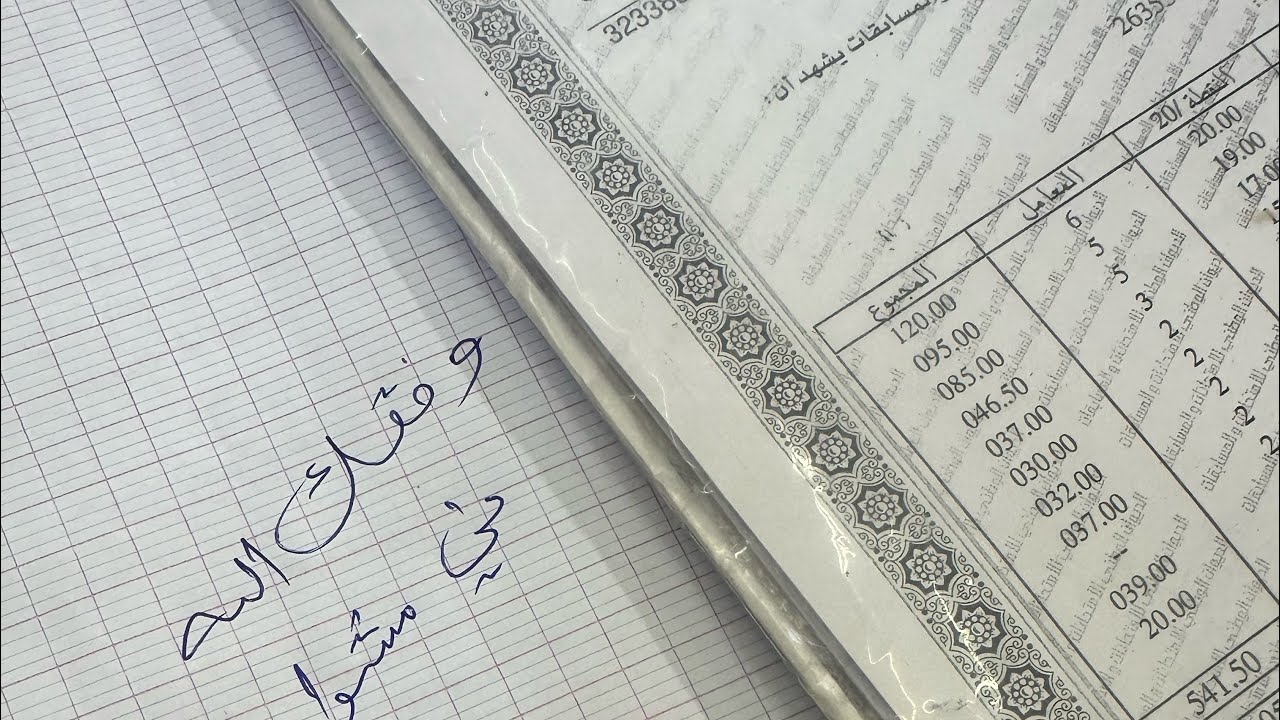 وفقك الله
في مشوا
والمسابقات يشهد أن:
النقطة /20
المعامل
المجموع
20.00 6 120.00
19.00 5 095.00
17.00 5 085.00
3 046.50
2 037.00
2 030.00
2 032.00
2 037.00
2 039.00
20.00
541.50
الديوان الوطني للامتحانات و المسابقات